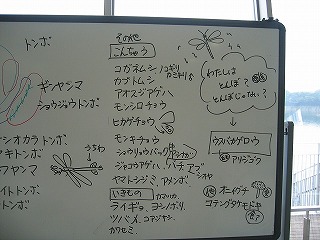 トンボ
ギンヤンマ
ショウジョウトンボ
シオカラトンボ
アキトンボ
ヤンマ
イトトンボ
トンボ
うちわ
その他
こんちゅう
コガネムシ
ノコギリ
カミキリ
カブトムシ
アオスジアゲハ
モンシロチョウ
ヒカゲチョウ
モンキチョウ
ショウリョウバッタ
ジャコウアゲハ
ハチ アブ
ヤマトシジミ
アメンボ
いきもの
カマツカ
ライギョ
ヨシノボリ
ツバメ
コアジサシ
カワセミ
わたしは
とんぼ?
とんぼじゃない?
ウスバカゲロウ
アリジゴク
オニイグチ
コテングタケモドキ